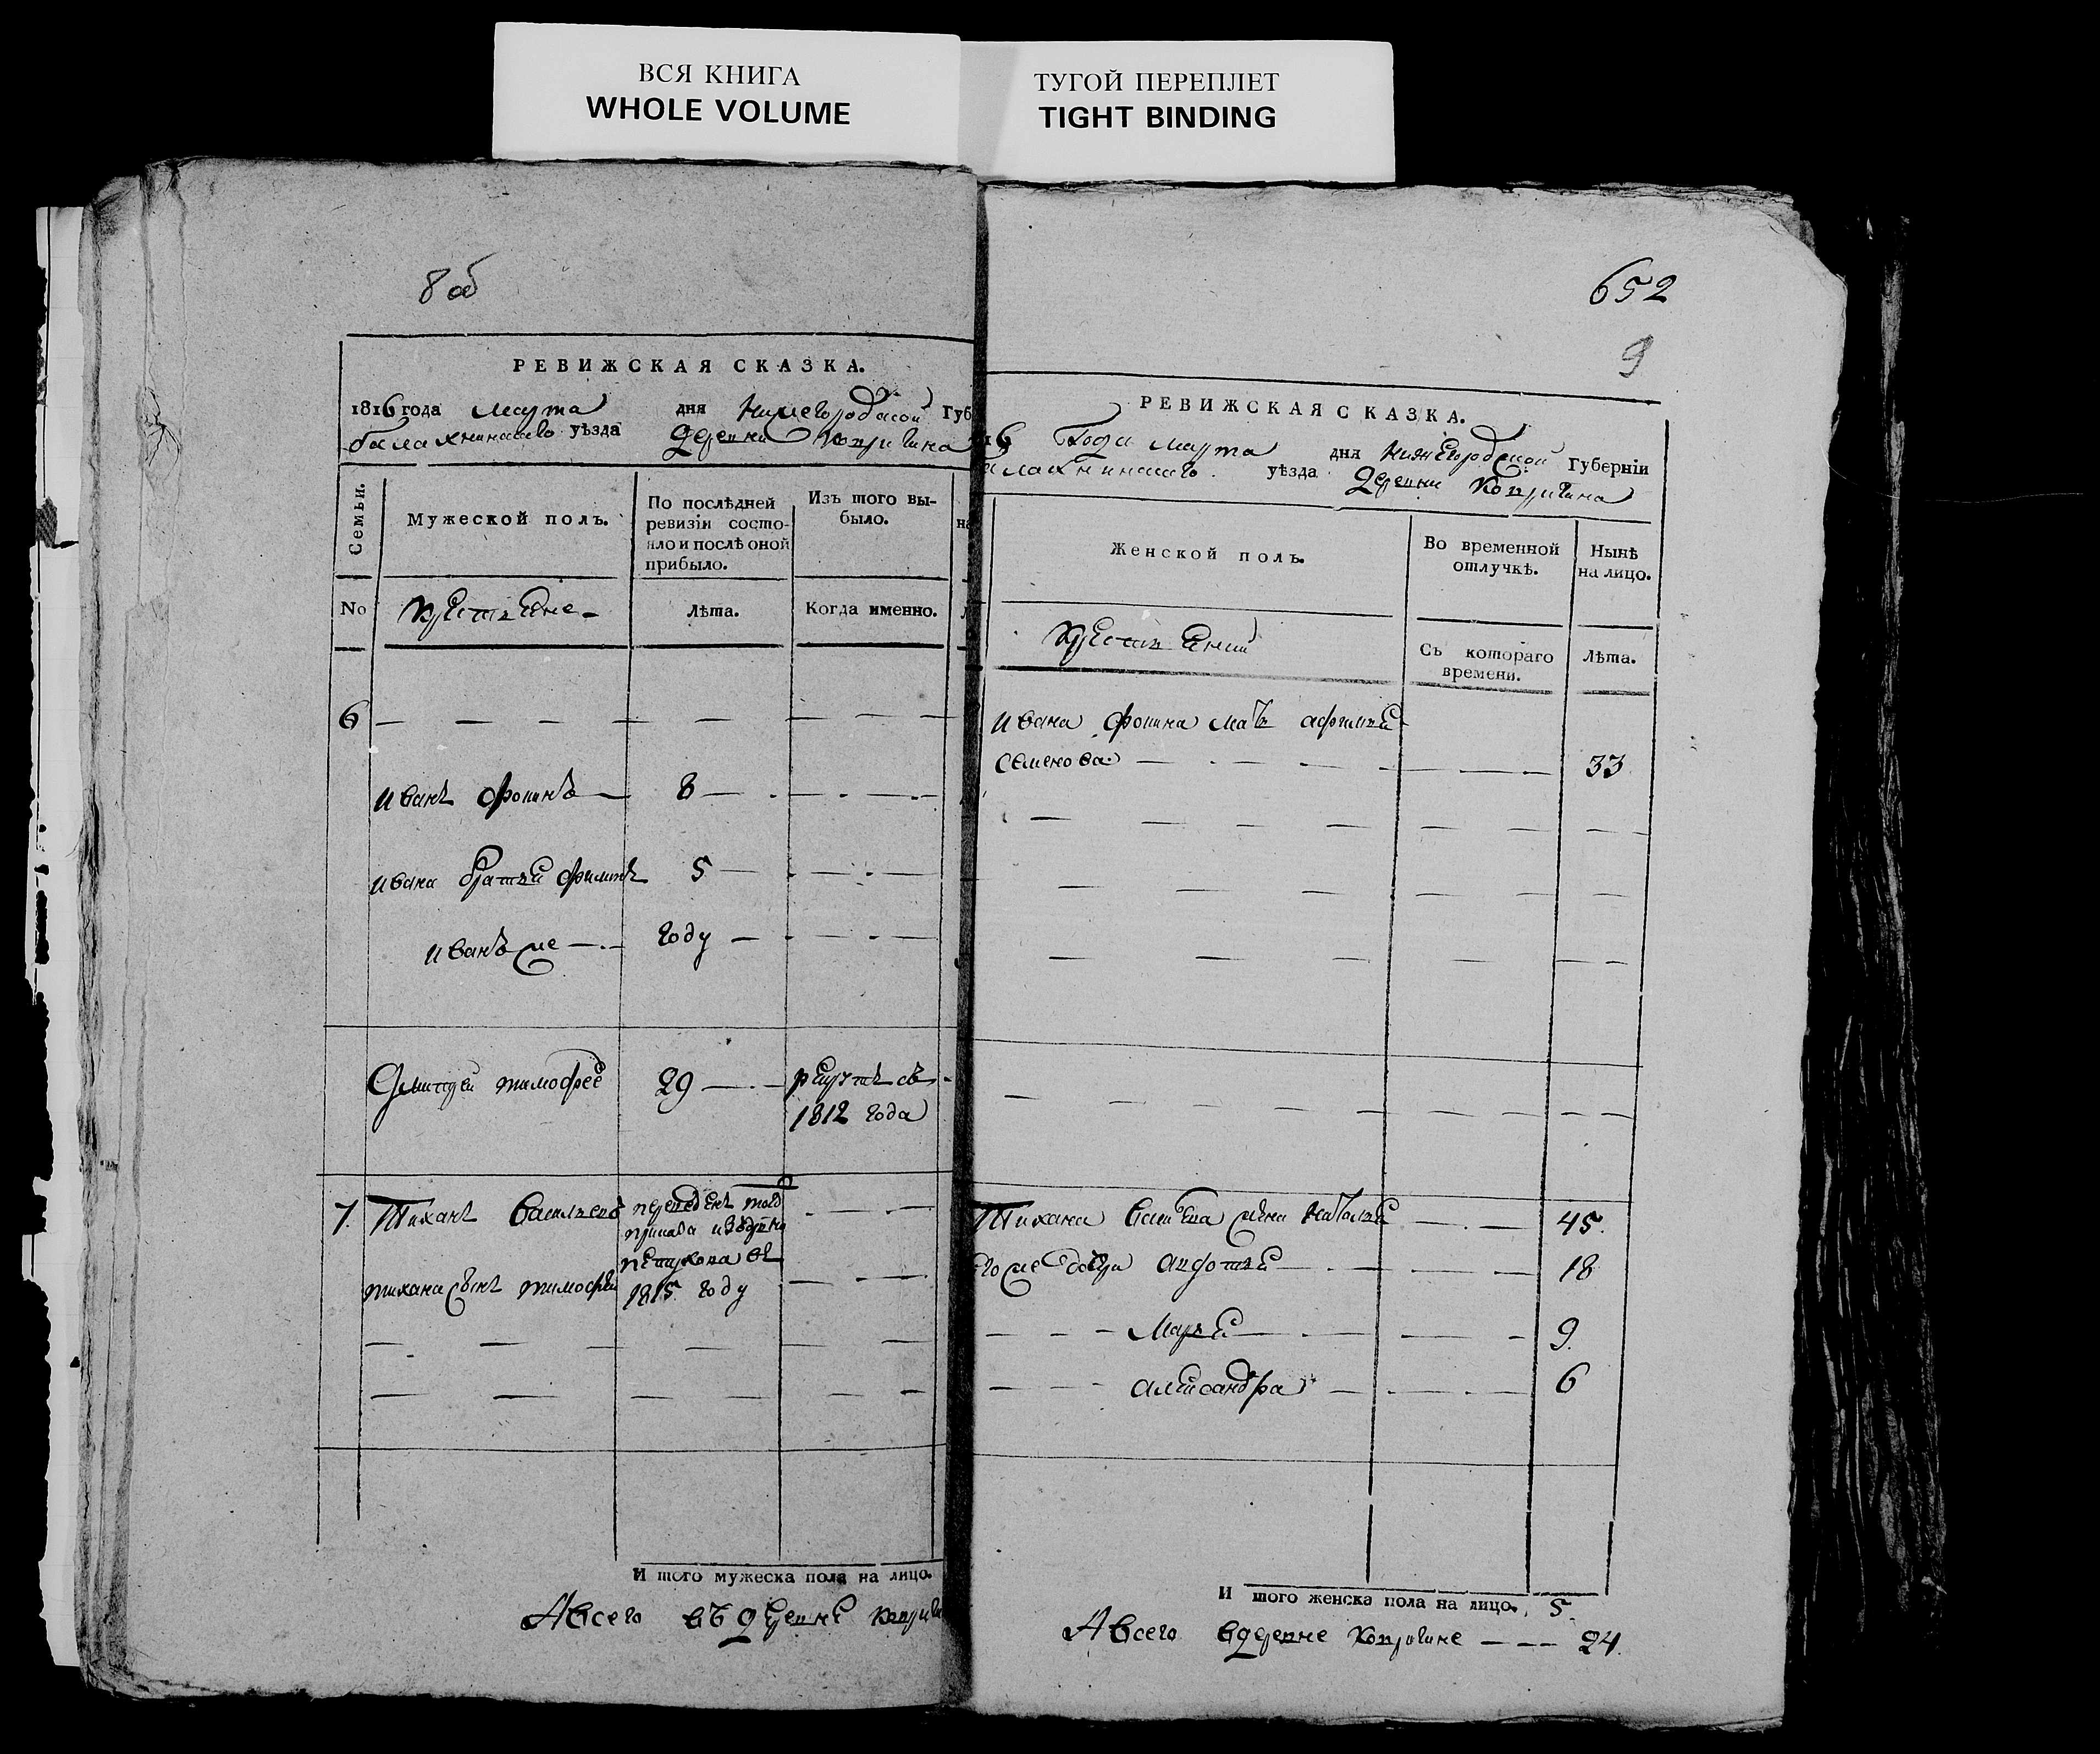 ВСЯ КНИГА
WHOLE VOLUME
ТУГОЙ ПЕРЕПЛЕТ
TIGHT BINDING
8 об
РЕВИЖСКАЯ СКАЗКА.
1816 года марта дня Нижегородской Губ
балахнинскаго уѣзда деревни
Семьи.
Мужеской полъ.
По послѣдней
ревизіи состо-
яло и послѣ оной
прибыло.
Изъ того вы-
было.
на
No
крестьяне
лѣта.
Когда именно.
6
иванъ фоминъ 8
ивана братья 5
иванъ же году
тимофее 29 рекрутъ въ
1812 года
7. Тиханъ васильевъ переведенъ
из деревни
въ
тихана сынъ тимофей 1815 году
И того мужеска пола на лицо.
А всего въ деревне
652
9
РЕВИЖСКАЯ СКАЗКА.
16 Года марта дня нижегородской Губерніи
алахнинскаго уѣзда деревни
Женской полъ.
Во временной
отлучкѣ.
Нынѣ
на лицо.
Съ котораго
времени.
лѣта.
ивана фомина мать афимья
семенова 33
Тихана жена наталья 45.
его же дочери авдотья 18
Марья 9.
александра 6
И того женска пола на лицо. 5.
А всего в деревне 24.